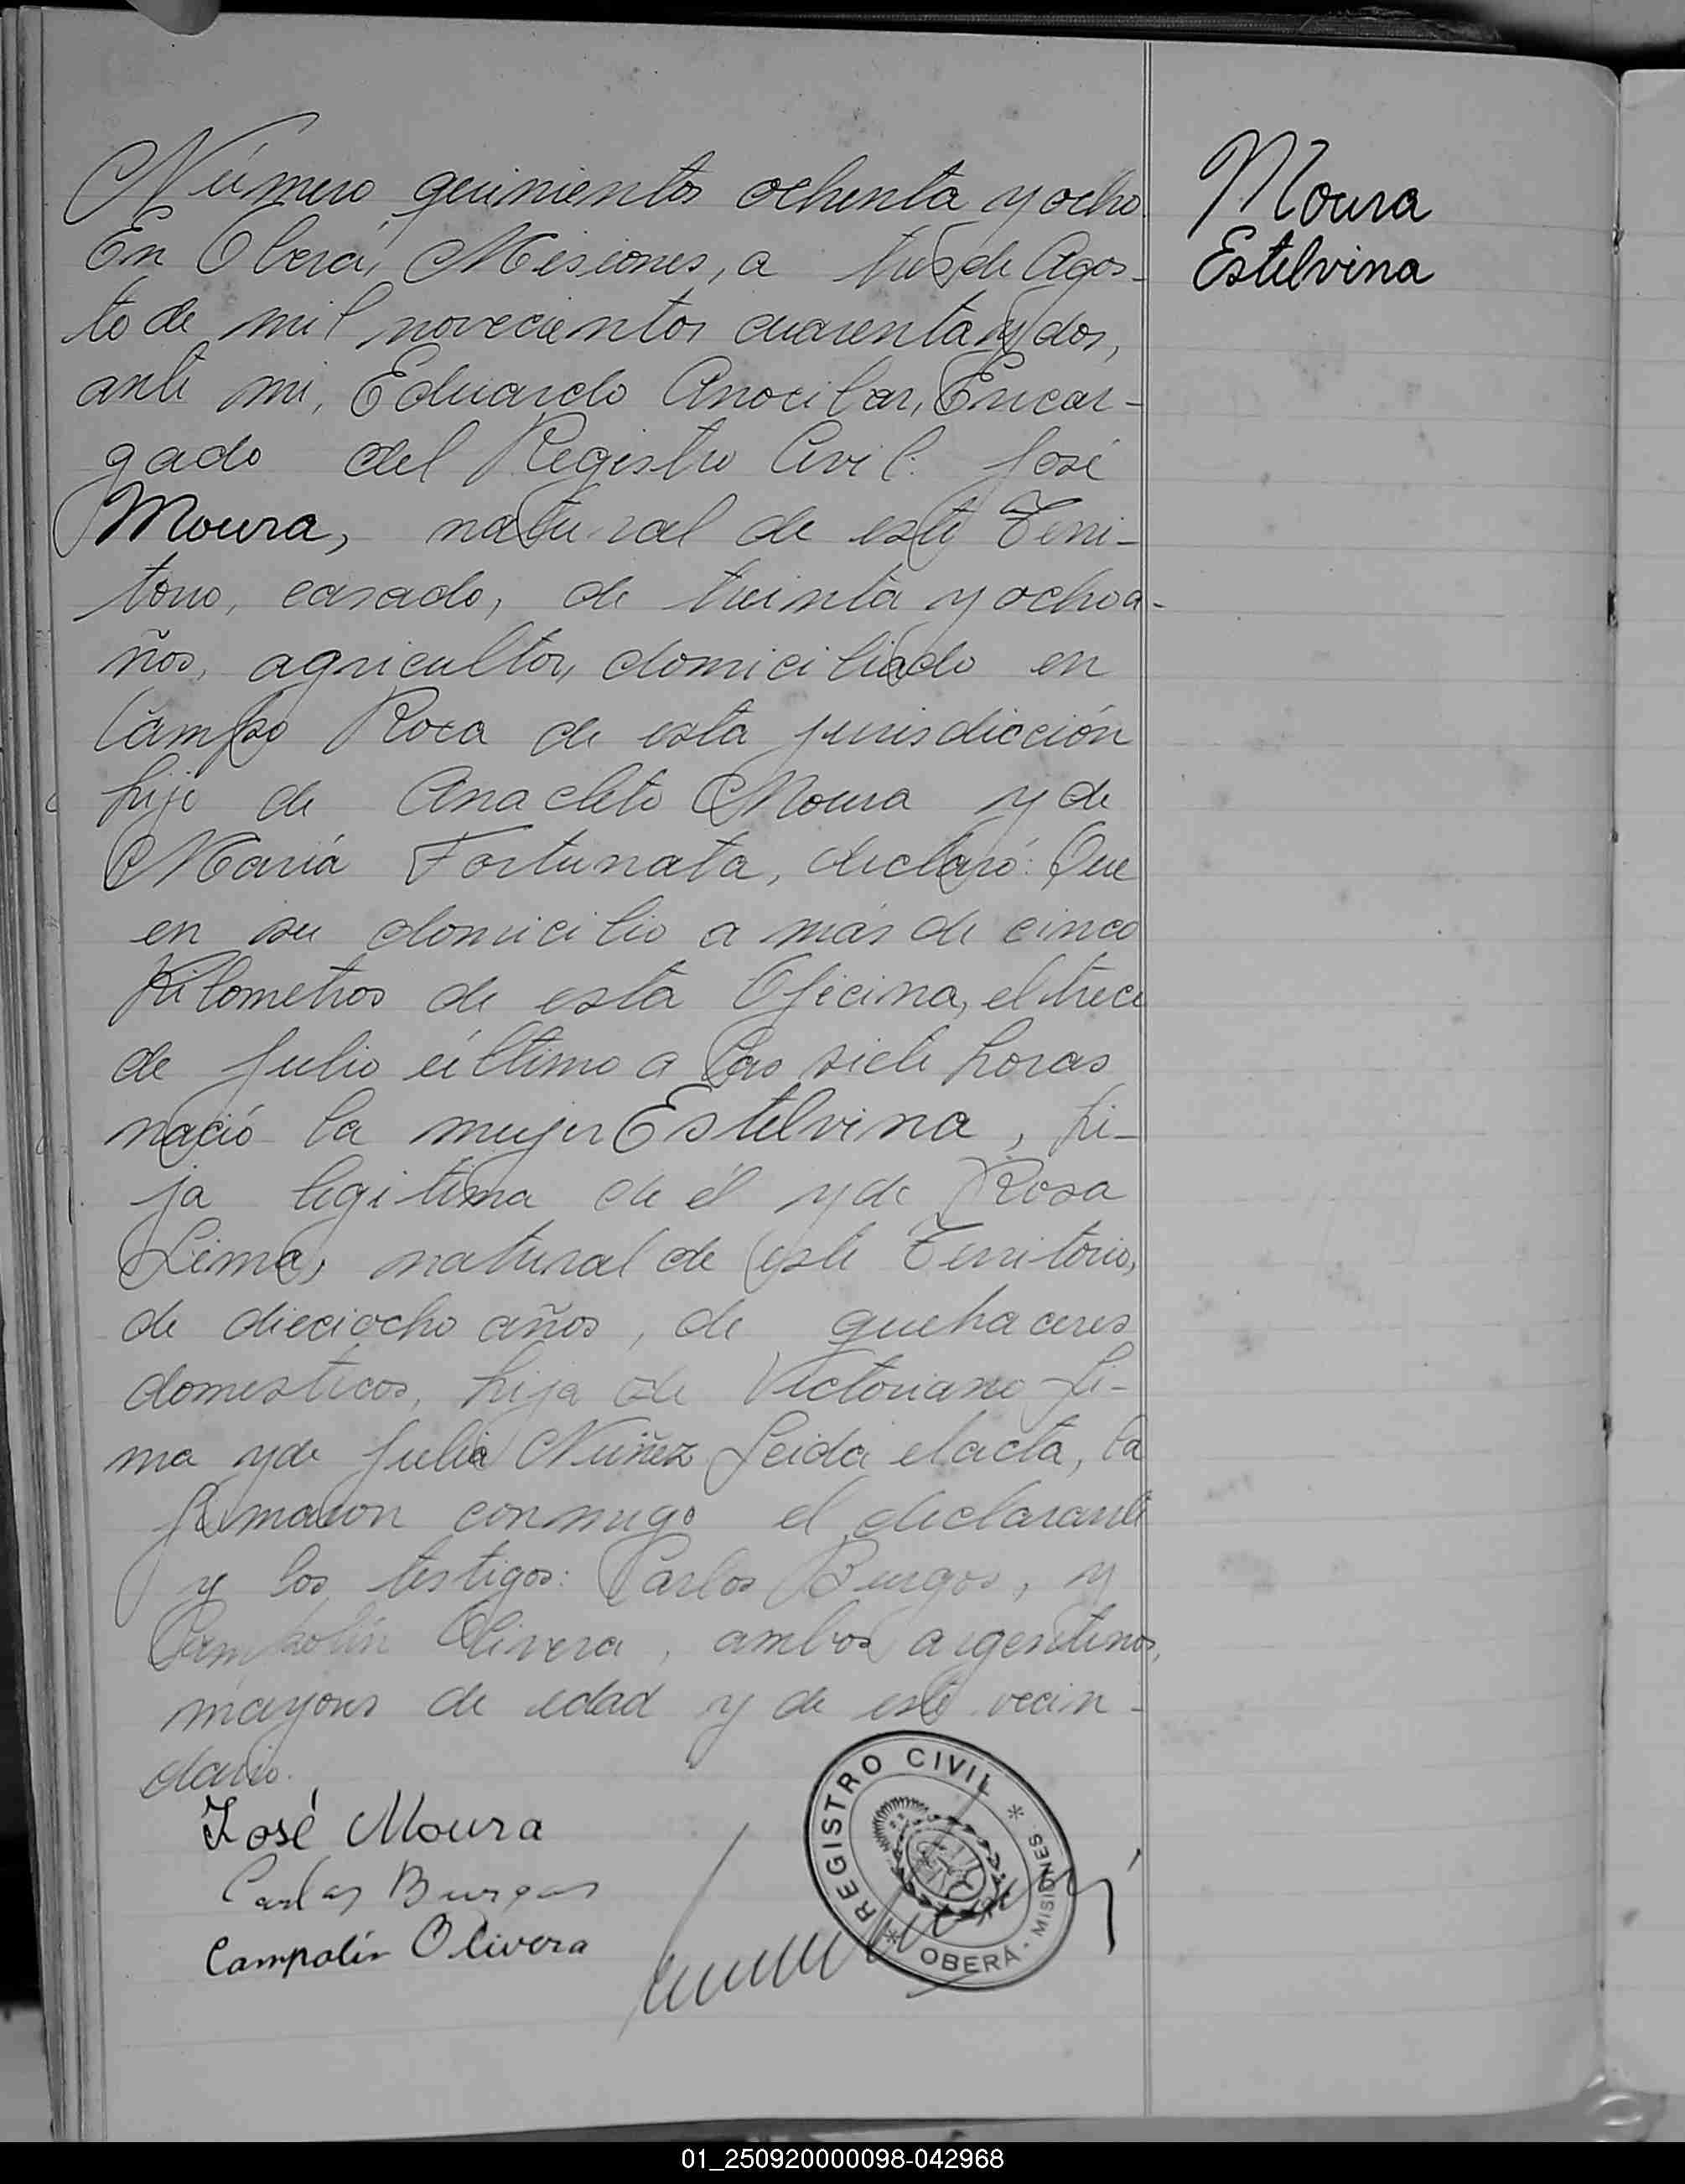 Número quinientos ochenta y ocho
En Oberá, Misiones, a tres de Agos-
to de mil novecientos cuarenta y dos,
ante mi, Eduardo Anocibar, Encar-
gado del Registro Civil: José
Moura, natural de este Terri-
torio, casado, de treinta y ocho a-
ños, agricultor, domiciliado en
Campo Roca de esta jurisdicción
hijo de Anacleto Moura y de
María Fortunata, declaró: Que
en su domicilio a más de cinco
Kilometros de esta Oficina, el trece
de Julio último a las siete horas
nació la mujer Estelvina, hi-
ja legitima de él y de Rosa
Lima, natural de este Territorio,
de dieciocho años, de quehaceres
domesticos, hija de Victoriano Li-
ma y de Julia Nuñez Leida el acta, la
firmaron conmigo el declarante
y los testigos: Carlos Burgos, y
Campolín Olivera, ambos argentinos,
mayores de edad y de este vecin-
dario.
José Moura
Carlos Burgos
Campolín Olivera
REGISTRO CIVIL
* OBERÁ - MISIONES *
Moura
Estelvina
01_250920000098-042968